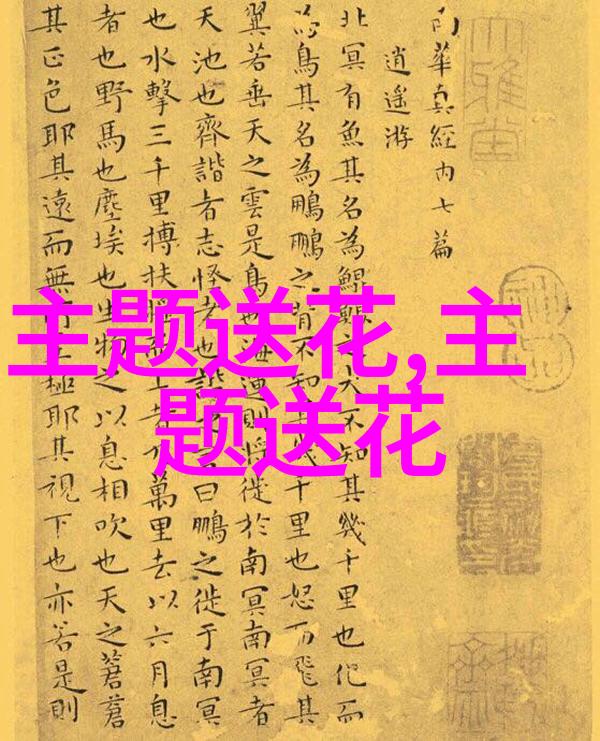 南華真經内七篇
逍遙游
北冥有魚其名為鯤鯤之大不知其幾千里也化而
為鳥其名為鵬鵬之背不知其幾千里也怒而飛其
翼若垂天之雲是鳥也海運則將徙於南冥南冥者
天池也齊諧者志怪者也諧之言曰鵬之徙于南冥
也水擊三千里摶扶搖而上者九萬里去以六月息
者也野馬也塵埃也生物之以息相吹也天之蒼蒼
其正色耶其遠而無所至極耶其視下也亦若是則
主题送花,主
题送花